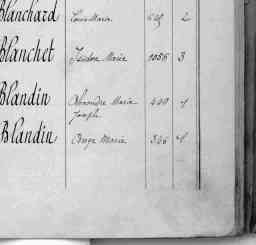 Blanchard Louis Marie 2
Blanchet Isidore Marie 1056 3
Blandin Alexandre Marie 4
Joseph
Blandin Ange Marie 4